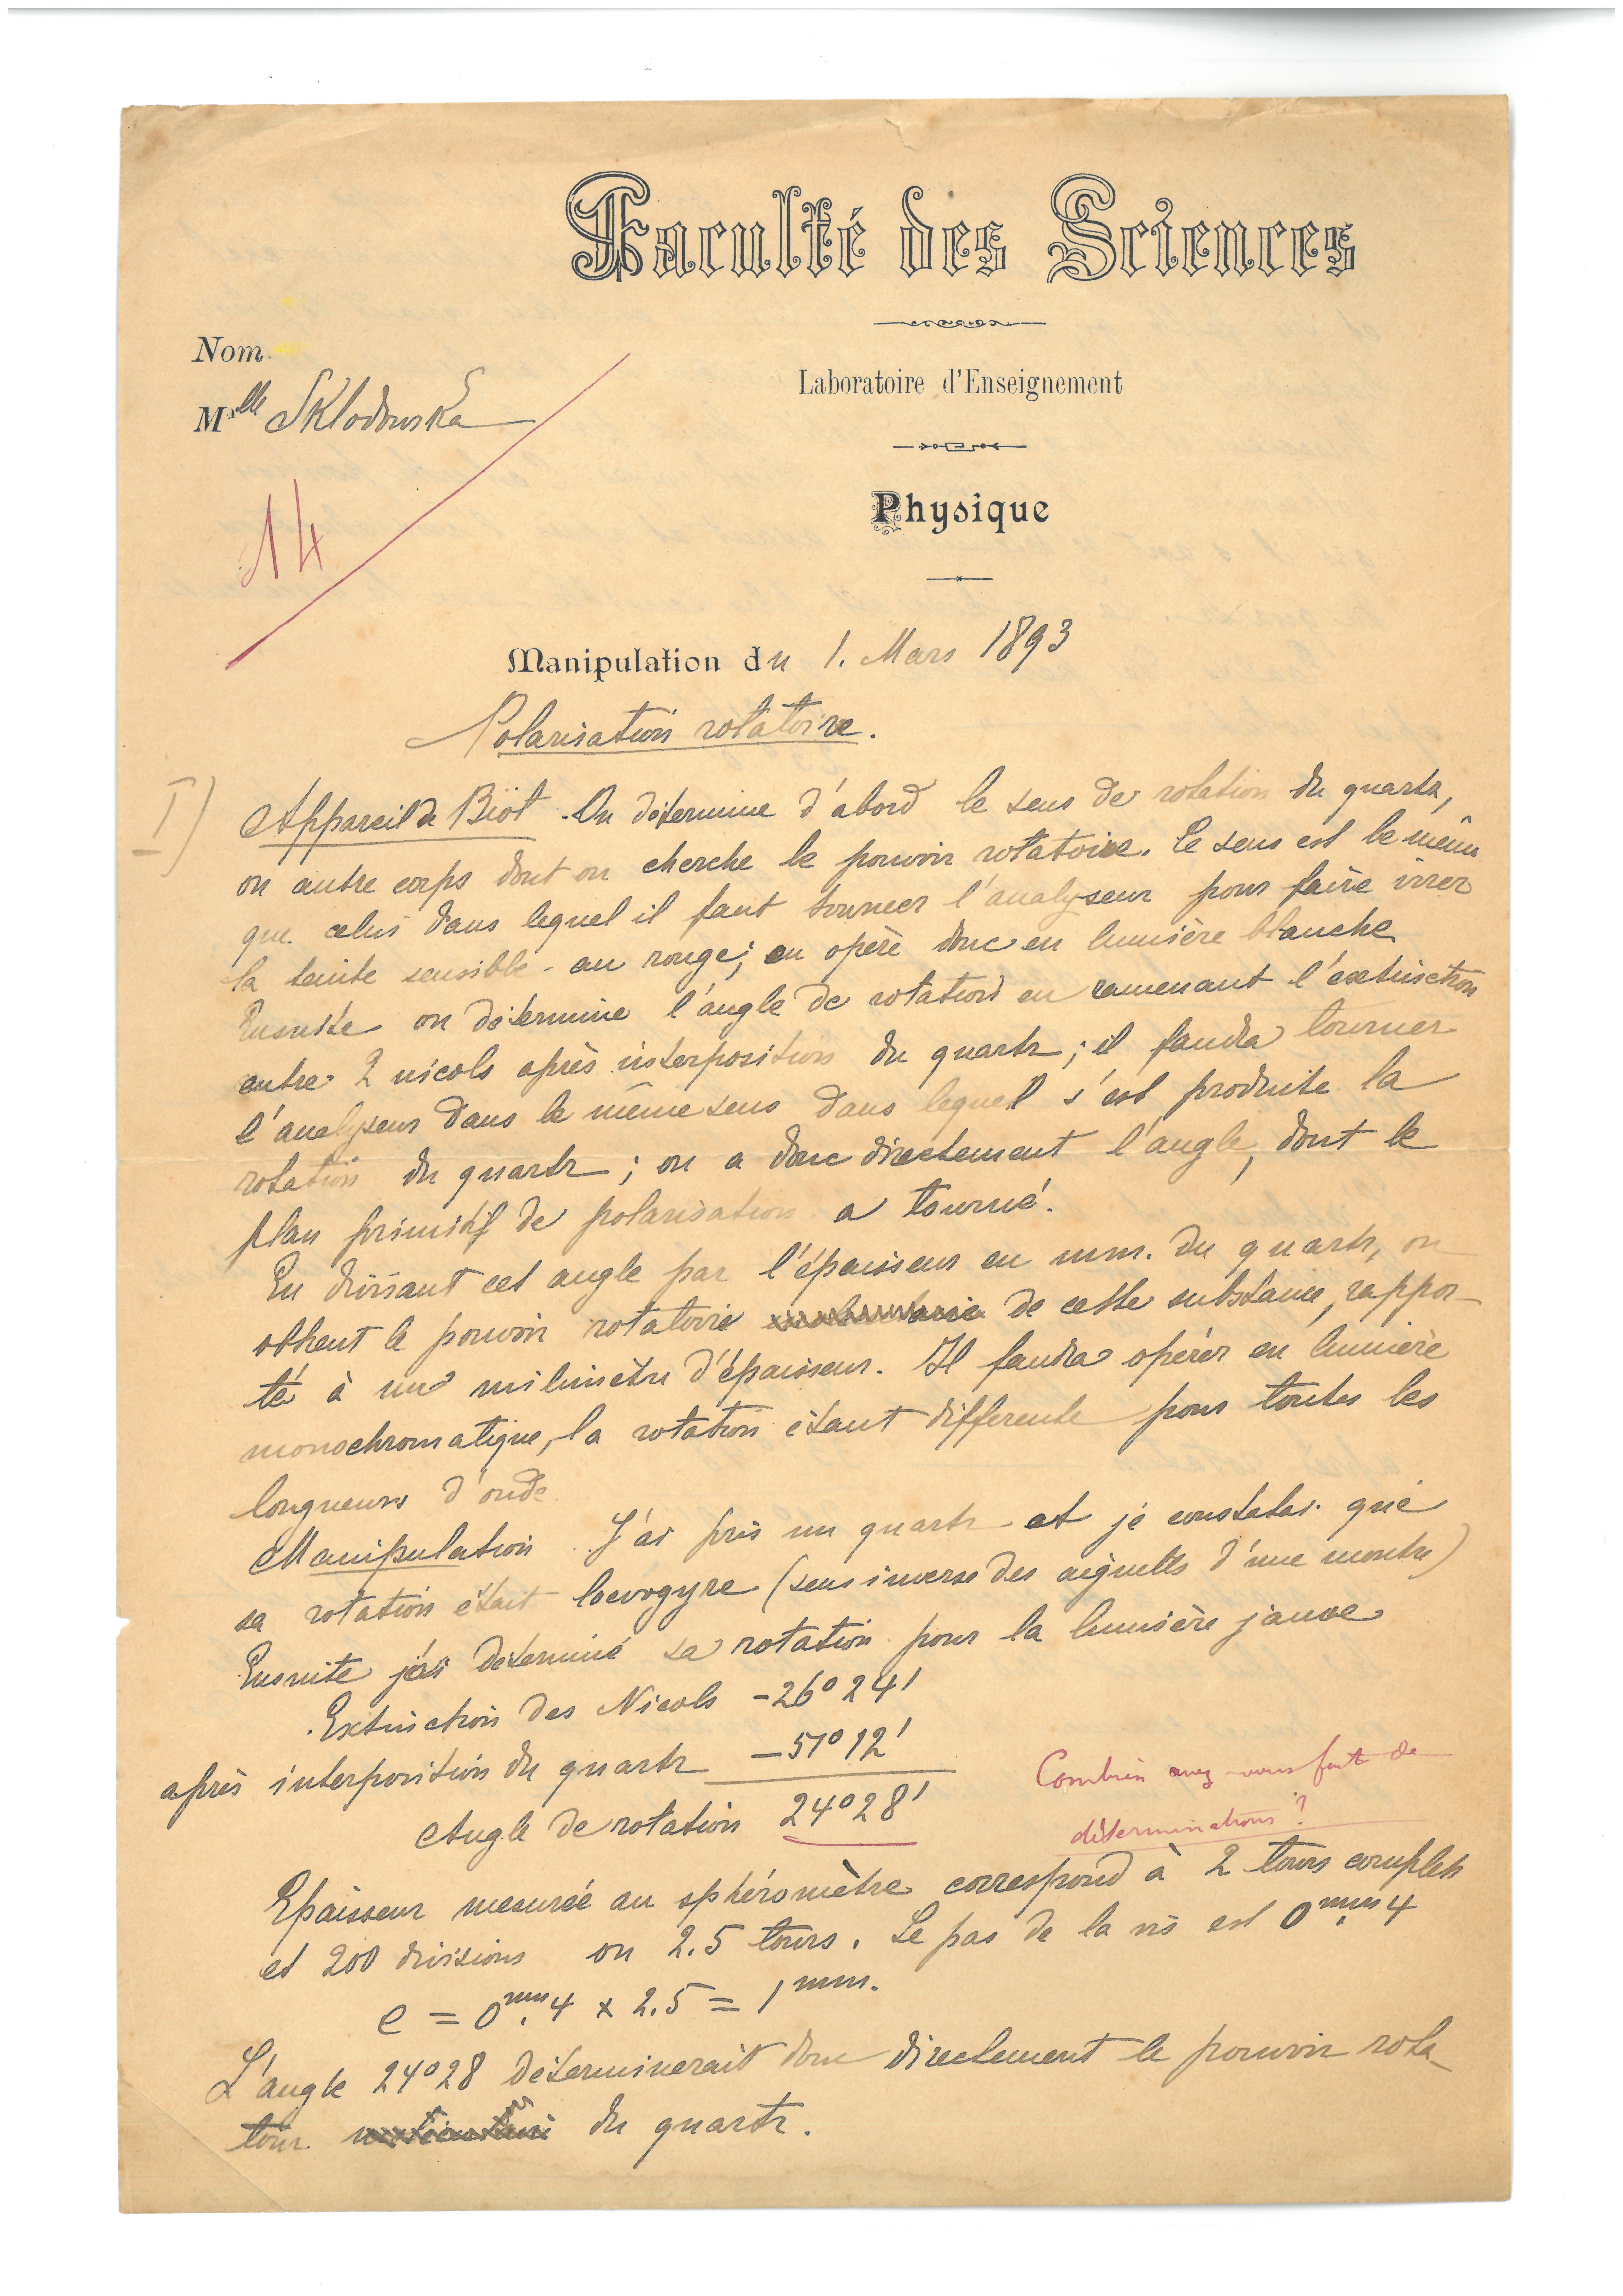 Faculté des Sciences
Nom
Laboratoire d'Enseignement
M.lle Sklodowska
14
Physique
Manipulation du 1. Mars 1893
Polarisation rotatoire.
I) Appareil de Biot. On détermine d'abord le sens de rotation du quartz,
ou autre corps dont on cherche le pouvoir rotatoire. Ce sens est le même
que celui dans lequel il faut tourner l'analyseur pour faire virer
la teinte sensible au rouge; on opère donc en lumière blanche
Ensuite on détermine l'angle de rotation en ramenant l'extinction
entre 2 nicols après interposition du quartz; il faudra tourner
l'analyseur dans le même sens dans lequel s'est produite la
rotation du quartz; on a donc directement l'angle, dont le
plan primitif de polarisation a tourné.
En divisant cet angle par l'épaisseur en mm. du quartz, on
obtient le pouvoir rotatoire de cette substance, rappor-
té à un milimètre d'épaisseur. Il faudra opérer en lumière
monochromatique, la rotation étant differente pour toutes les
longueurs d'onde
Manipulation J'ai pris un quartz et je constatai que
sa rotation était loevogyre (sens inverse des aiguilles d'une montre)
Ensuite j'ai déterminé sa rotation pour la lumière jaune
Extinction des Nicols -26°24'
après interposition du quartz -51°12'
Angle de rotation 24°28'
Combien avez-vous fait de
déterminations?
Epaisseur mesurée au sphéromètre correspond à 2 tours complets
et 200 divisions ou 2.5 tours. Le pas de la vis est 0mm.4
e = 0mm.4 x 2.5 = 1mm.
L'angle 24°28 déterminerait donc directement le pouvoir rota-
toir du quartz.